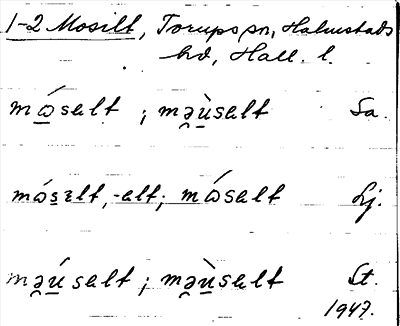 1-2 Mosilt, Torups sn, Halmstads
hd, Hall. l.
mɷ̲́salt ; mə̯ù̲salt Sa.
mɷ́s̲ɛlt, -alt; mɷ́salt Lj.
mə̯ú̲salt ; mə̯ù̲salt St.
1947.